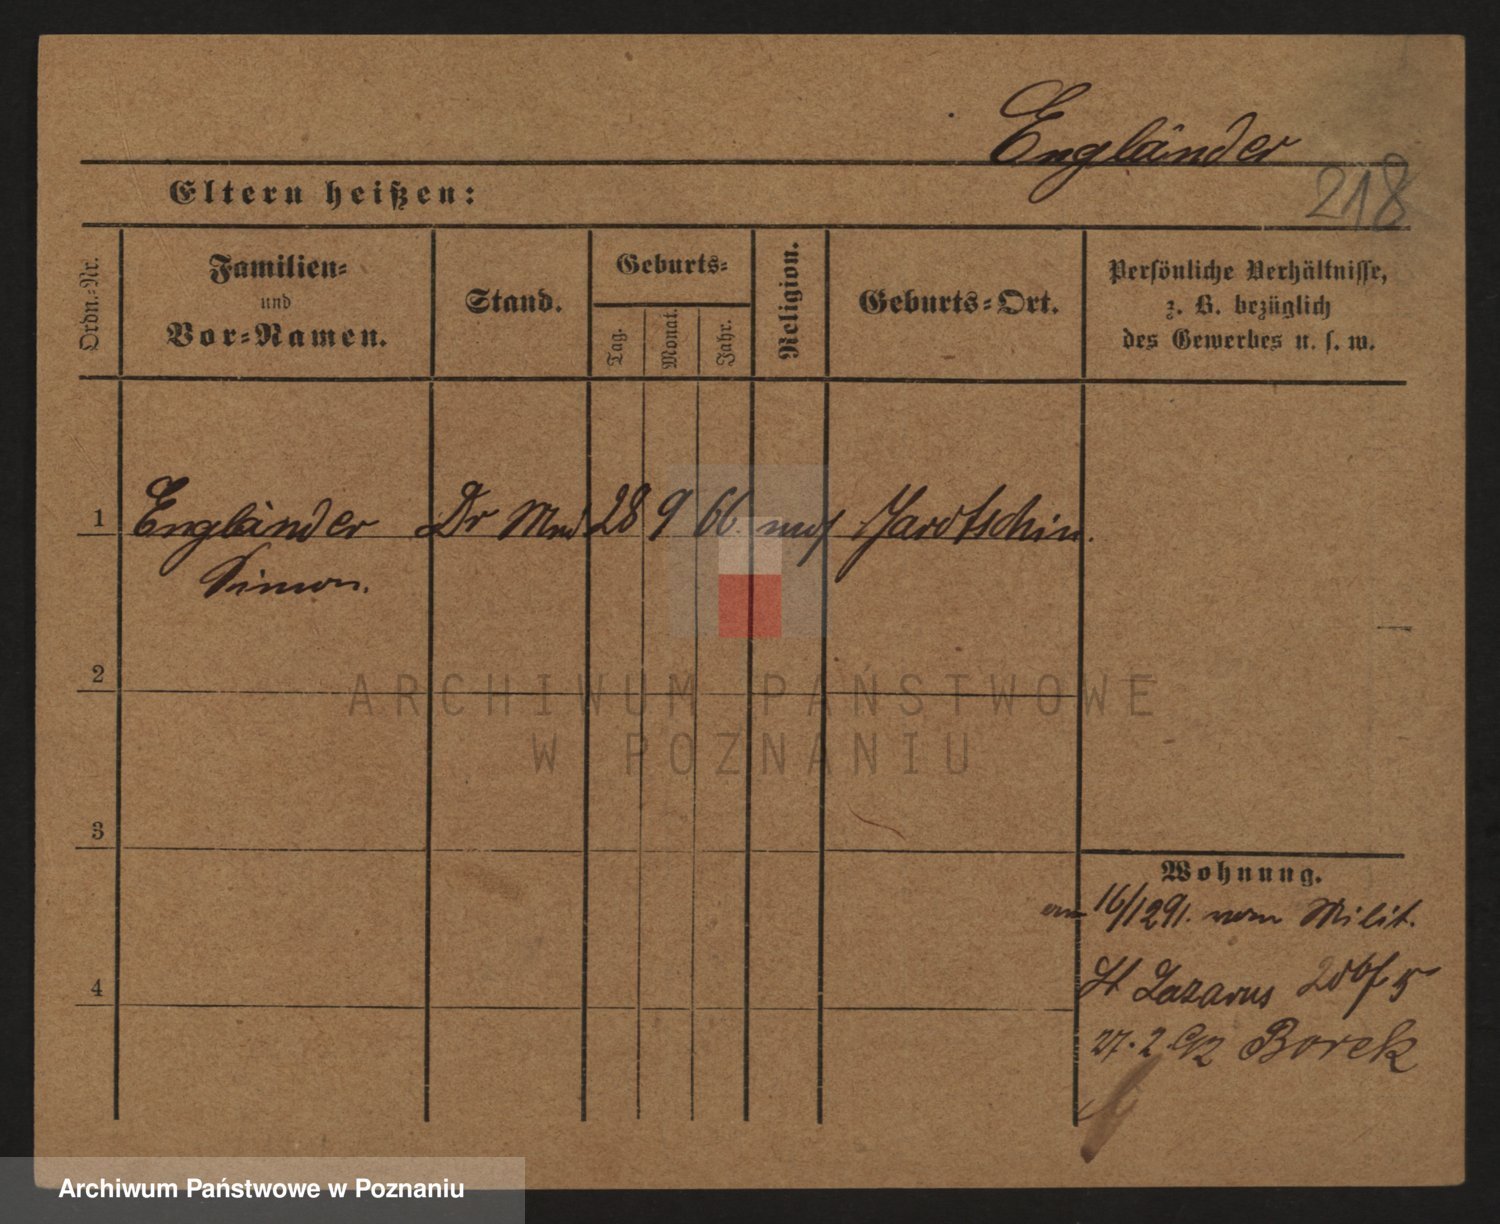 Engländer
218
Eltern heißen:
Ordn.-Nr.
Familien-
und
Vor-Namen.
Stand.
Geburts-
Tag.
Monat.
Jahr.
Religion.
Geburts-Ort.
Persönliche Verhältnisse,
z. B. bezüglich
des Gewerbes u. s. w.
1 Engländer Dr Med 28 9 66. mos Jarotschin.
Simon.
2
ARCHIWUM PAŃSTWOWE
W POZNANIU
3
Wohnung.
am 16/12 91. vom Milit.
4
St Lazarus
27. 2. 92 Borek
Archiwum Państwowe w Poznaniu